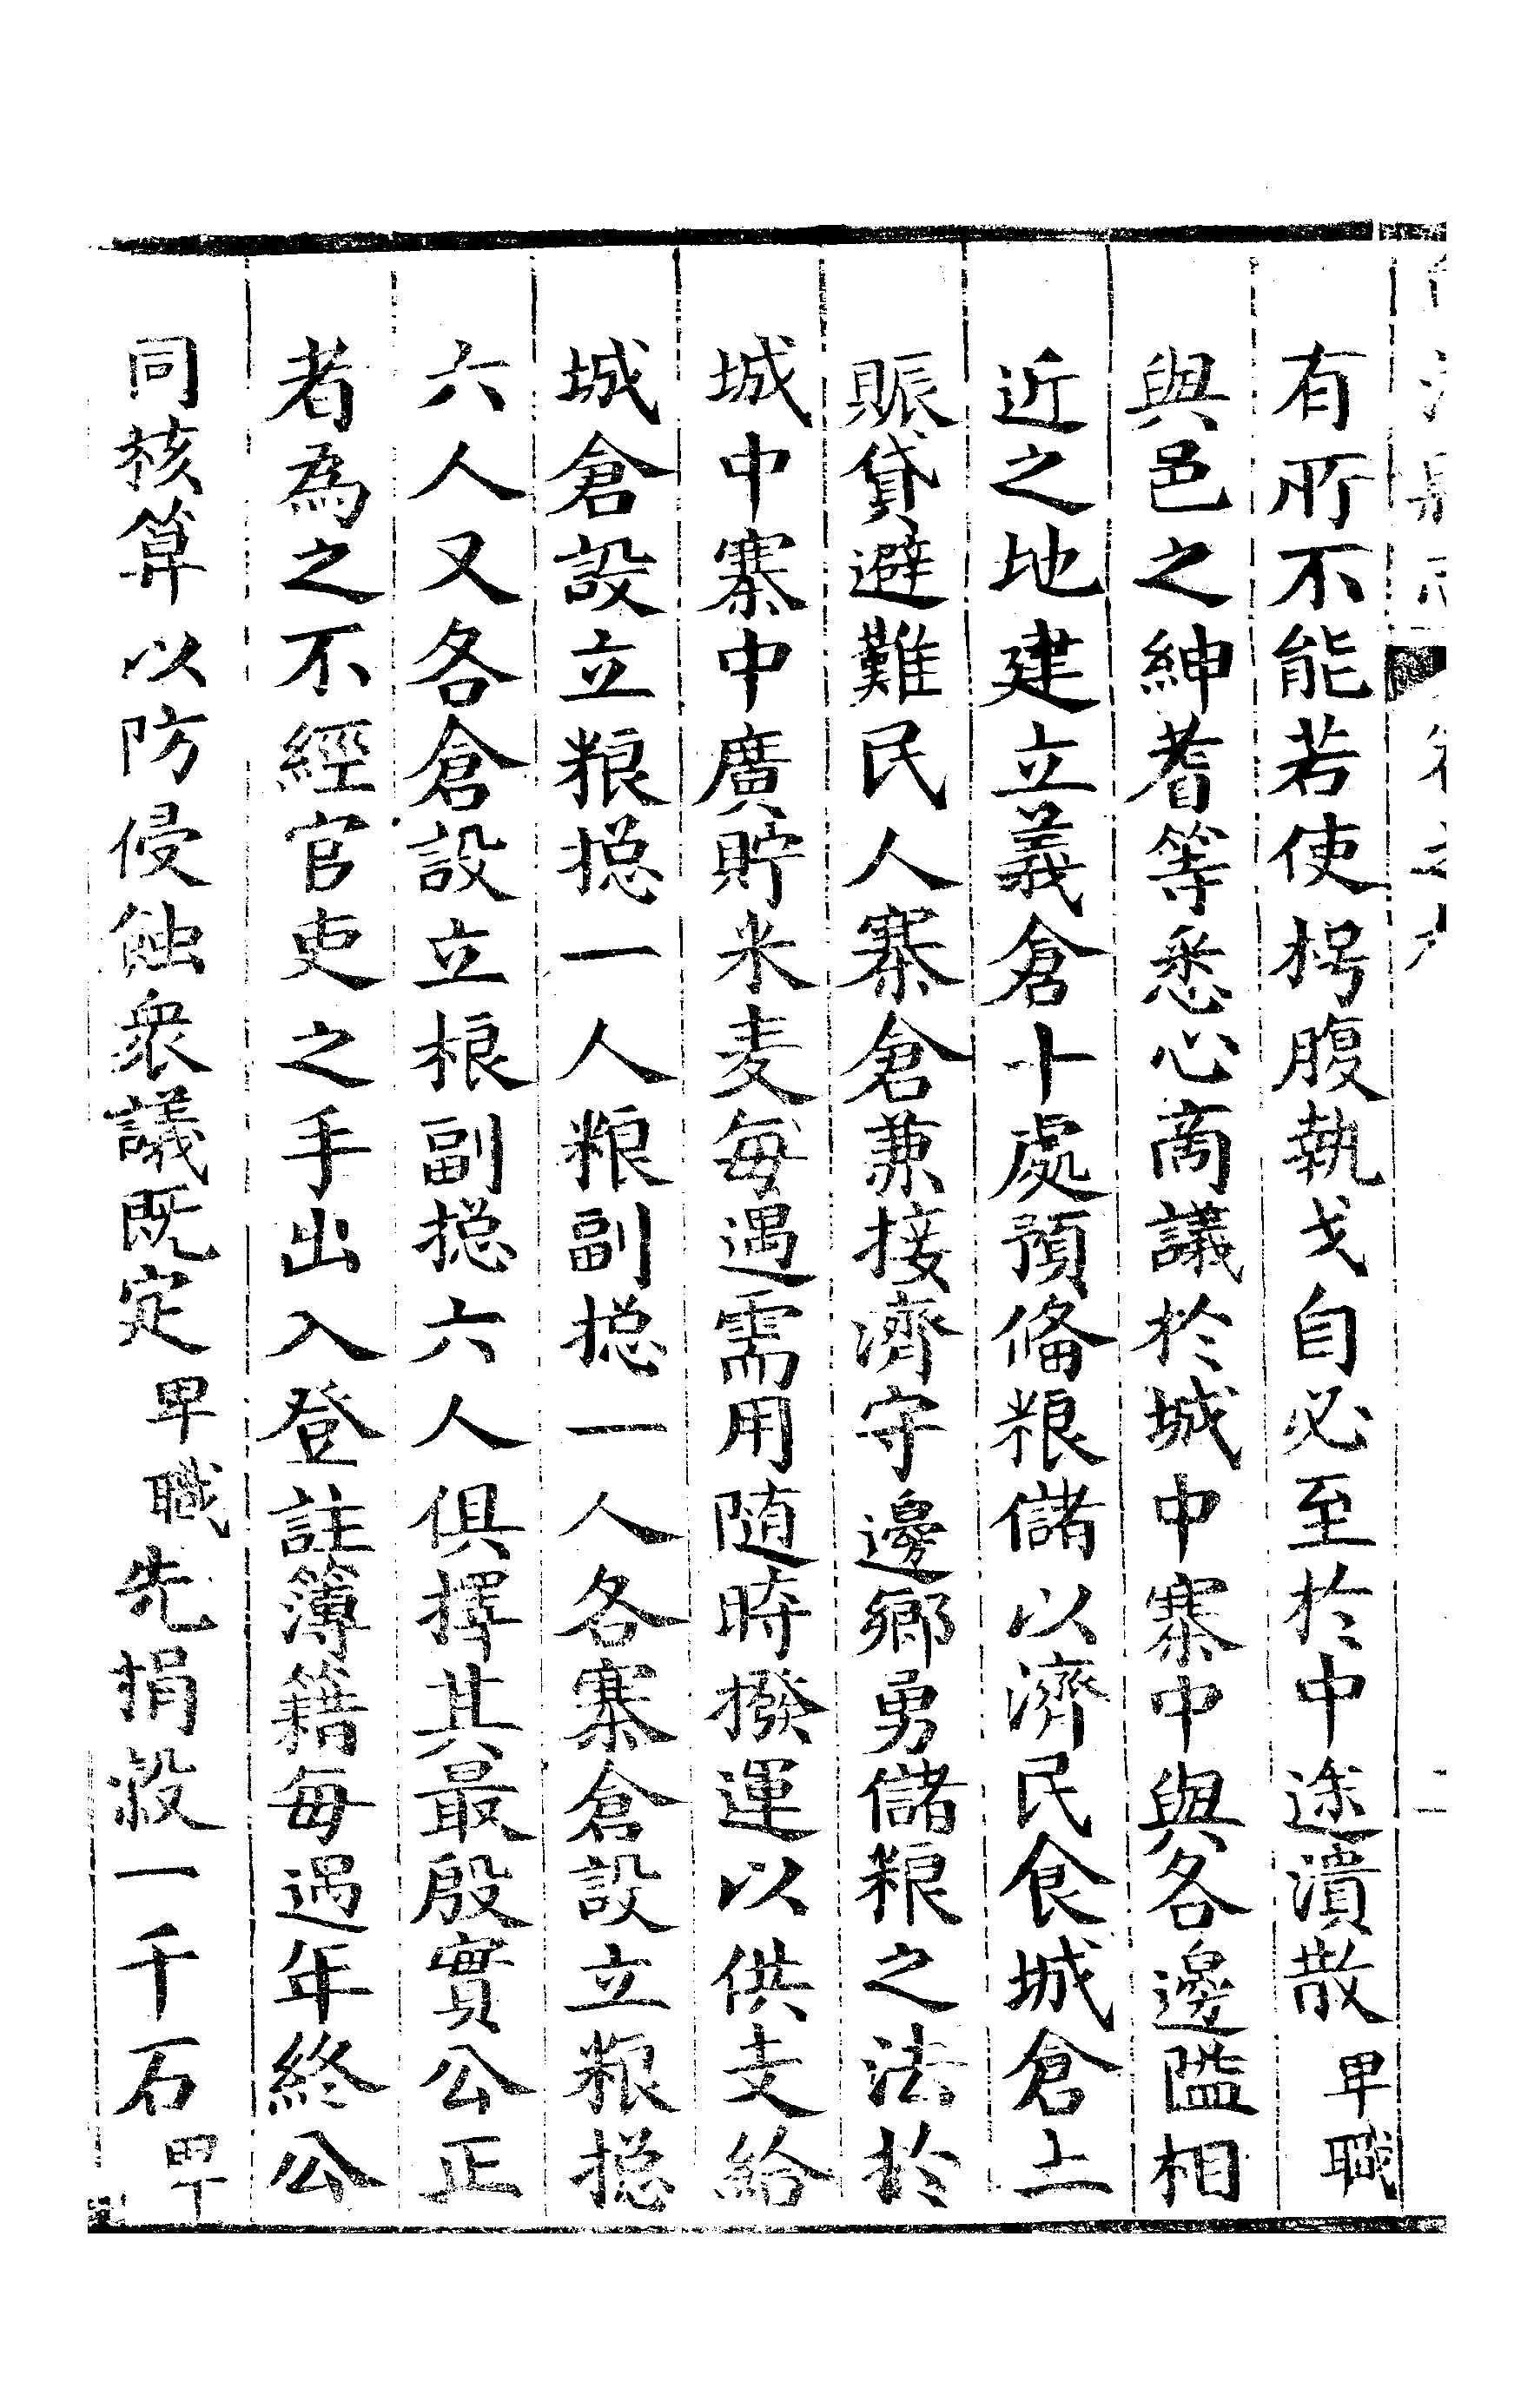 有所不能若使枵腹執戈自必至於中途潰散卑職
與邑之紳耆等悉心商議於城中寨中與各邊隘相
近之地建立義倉十處預備粮儲以濟民食城倉上
賑貸避難民人寨倉兼接濟守邊鄉勇儲粮之法於
城中寨中廣貯米麦每遇需用随時撥運以供支給
城倉設立粮捴一人粮副捴一人各寨倉設立粮捴
六人又各倉設立粮副捴六人俱擇其最殷實公正
者為之不經官吏之手出入登註簿籍每遇年終公
同核算以防侵蝕衆議既定卑職先捐穀一千石卑